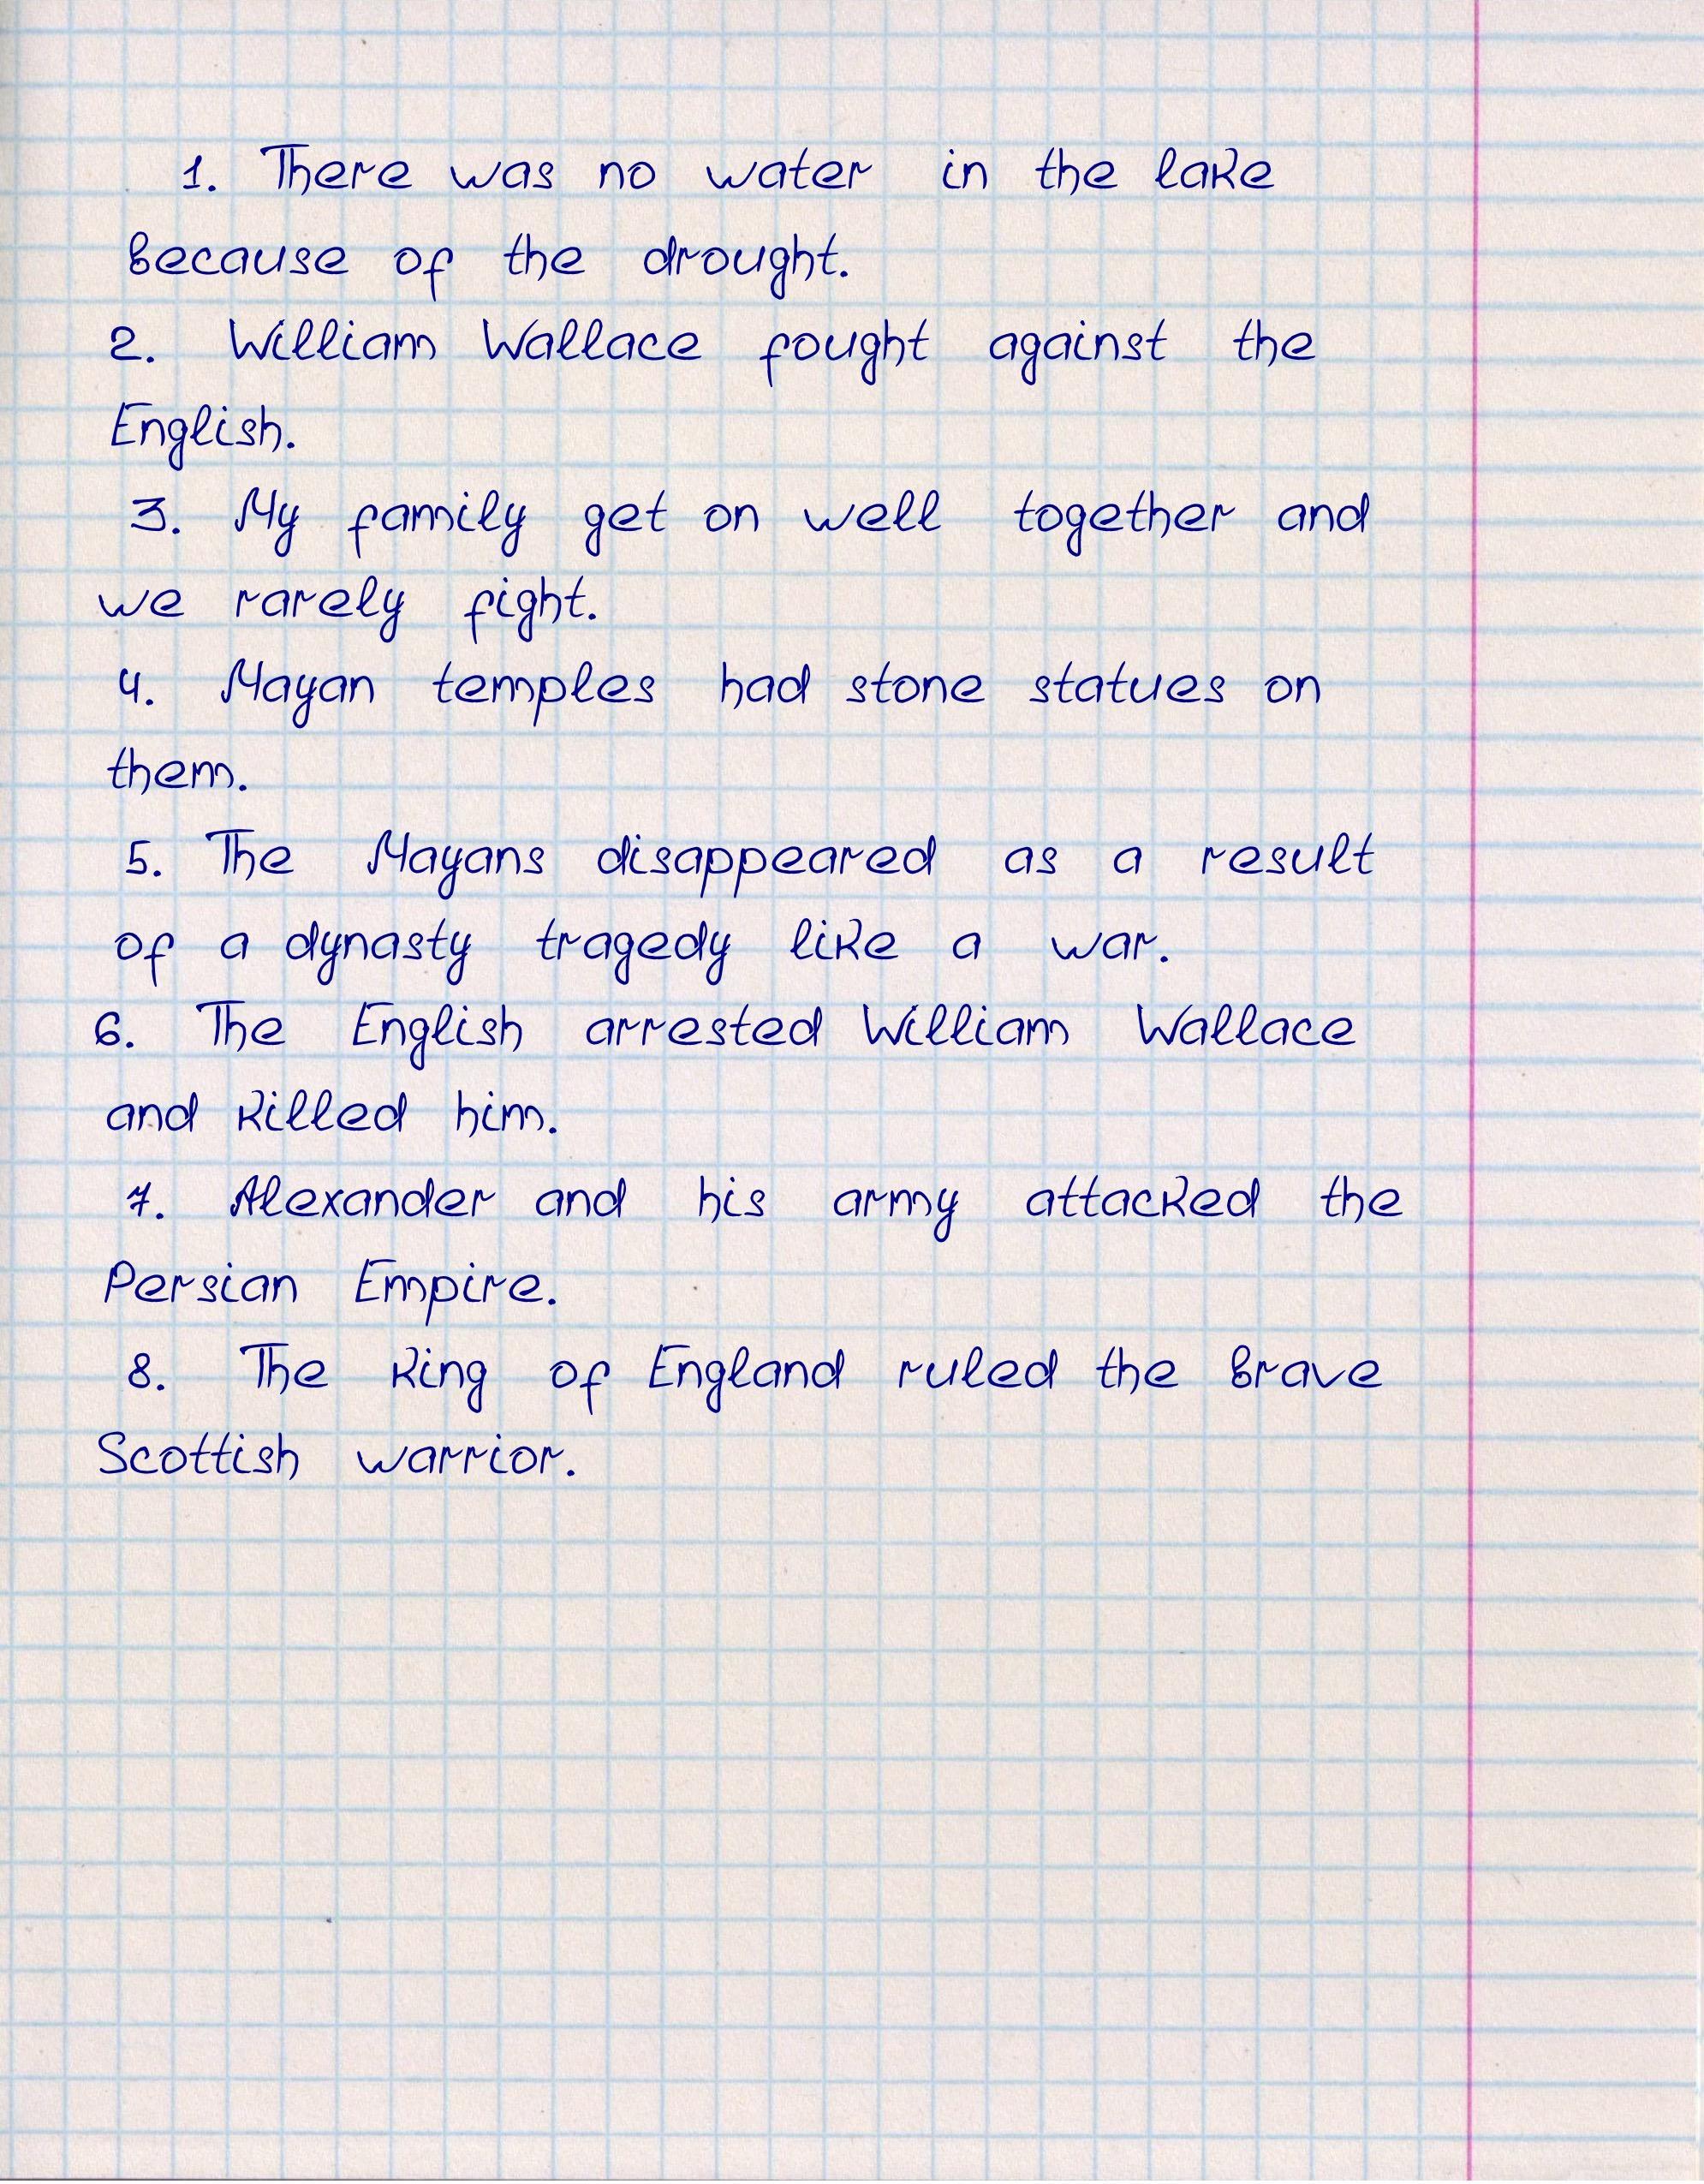 1. There was no water in the lake
because of the drought.
2. William Wallace fought against the
English.
3. My family get on well together and
we rarely fight.
4. Mayan temples had stone statues on
them.
5. The Mayans disappeared as a result
of a dynasty tragedy like a war.
6. The English arrested William Wallace
and killed him.
7. Alexander and his army attacked the
Persian Empire.
8. The king of England ruled the brave
Scottish warrior.